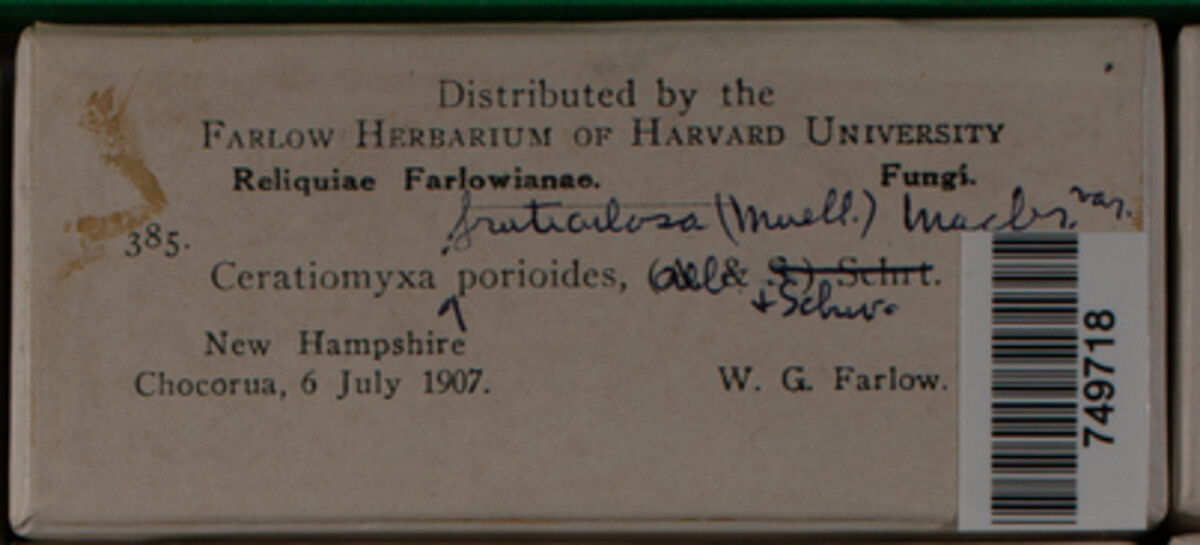 Distributed by the
FARLOW HERBARIUM OF HARVARD UNIVERSITY
Reliquiae Farlowianae. Fungi.
fruticulosa (Muell.) Macbr. var.
385.
Ceratiomyxa porioides, (Alb & S.) Schrt.
+ Schw.
New Hampshire
Chocorua, 6 July 1907. W. G. Farlow.
749718